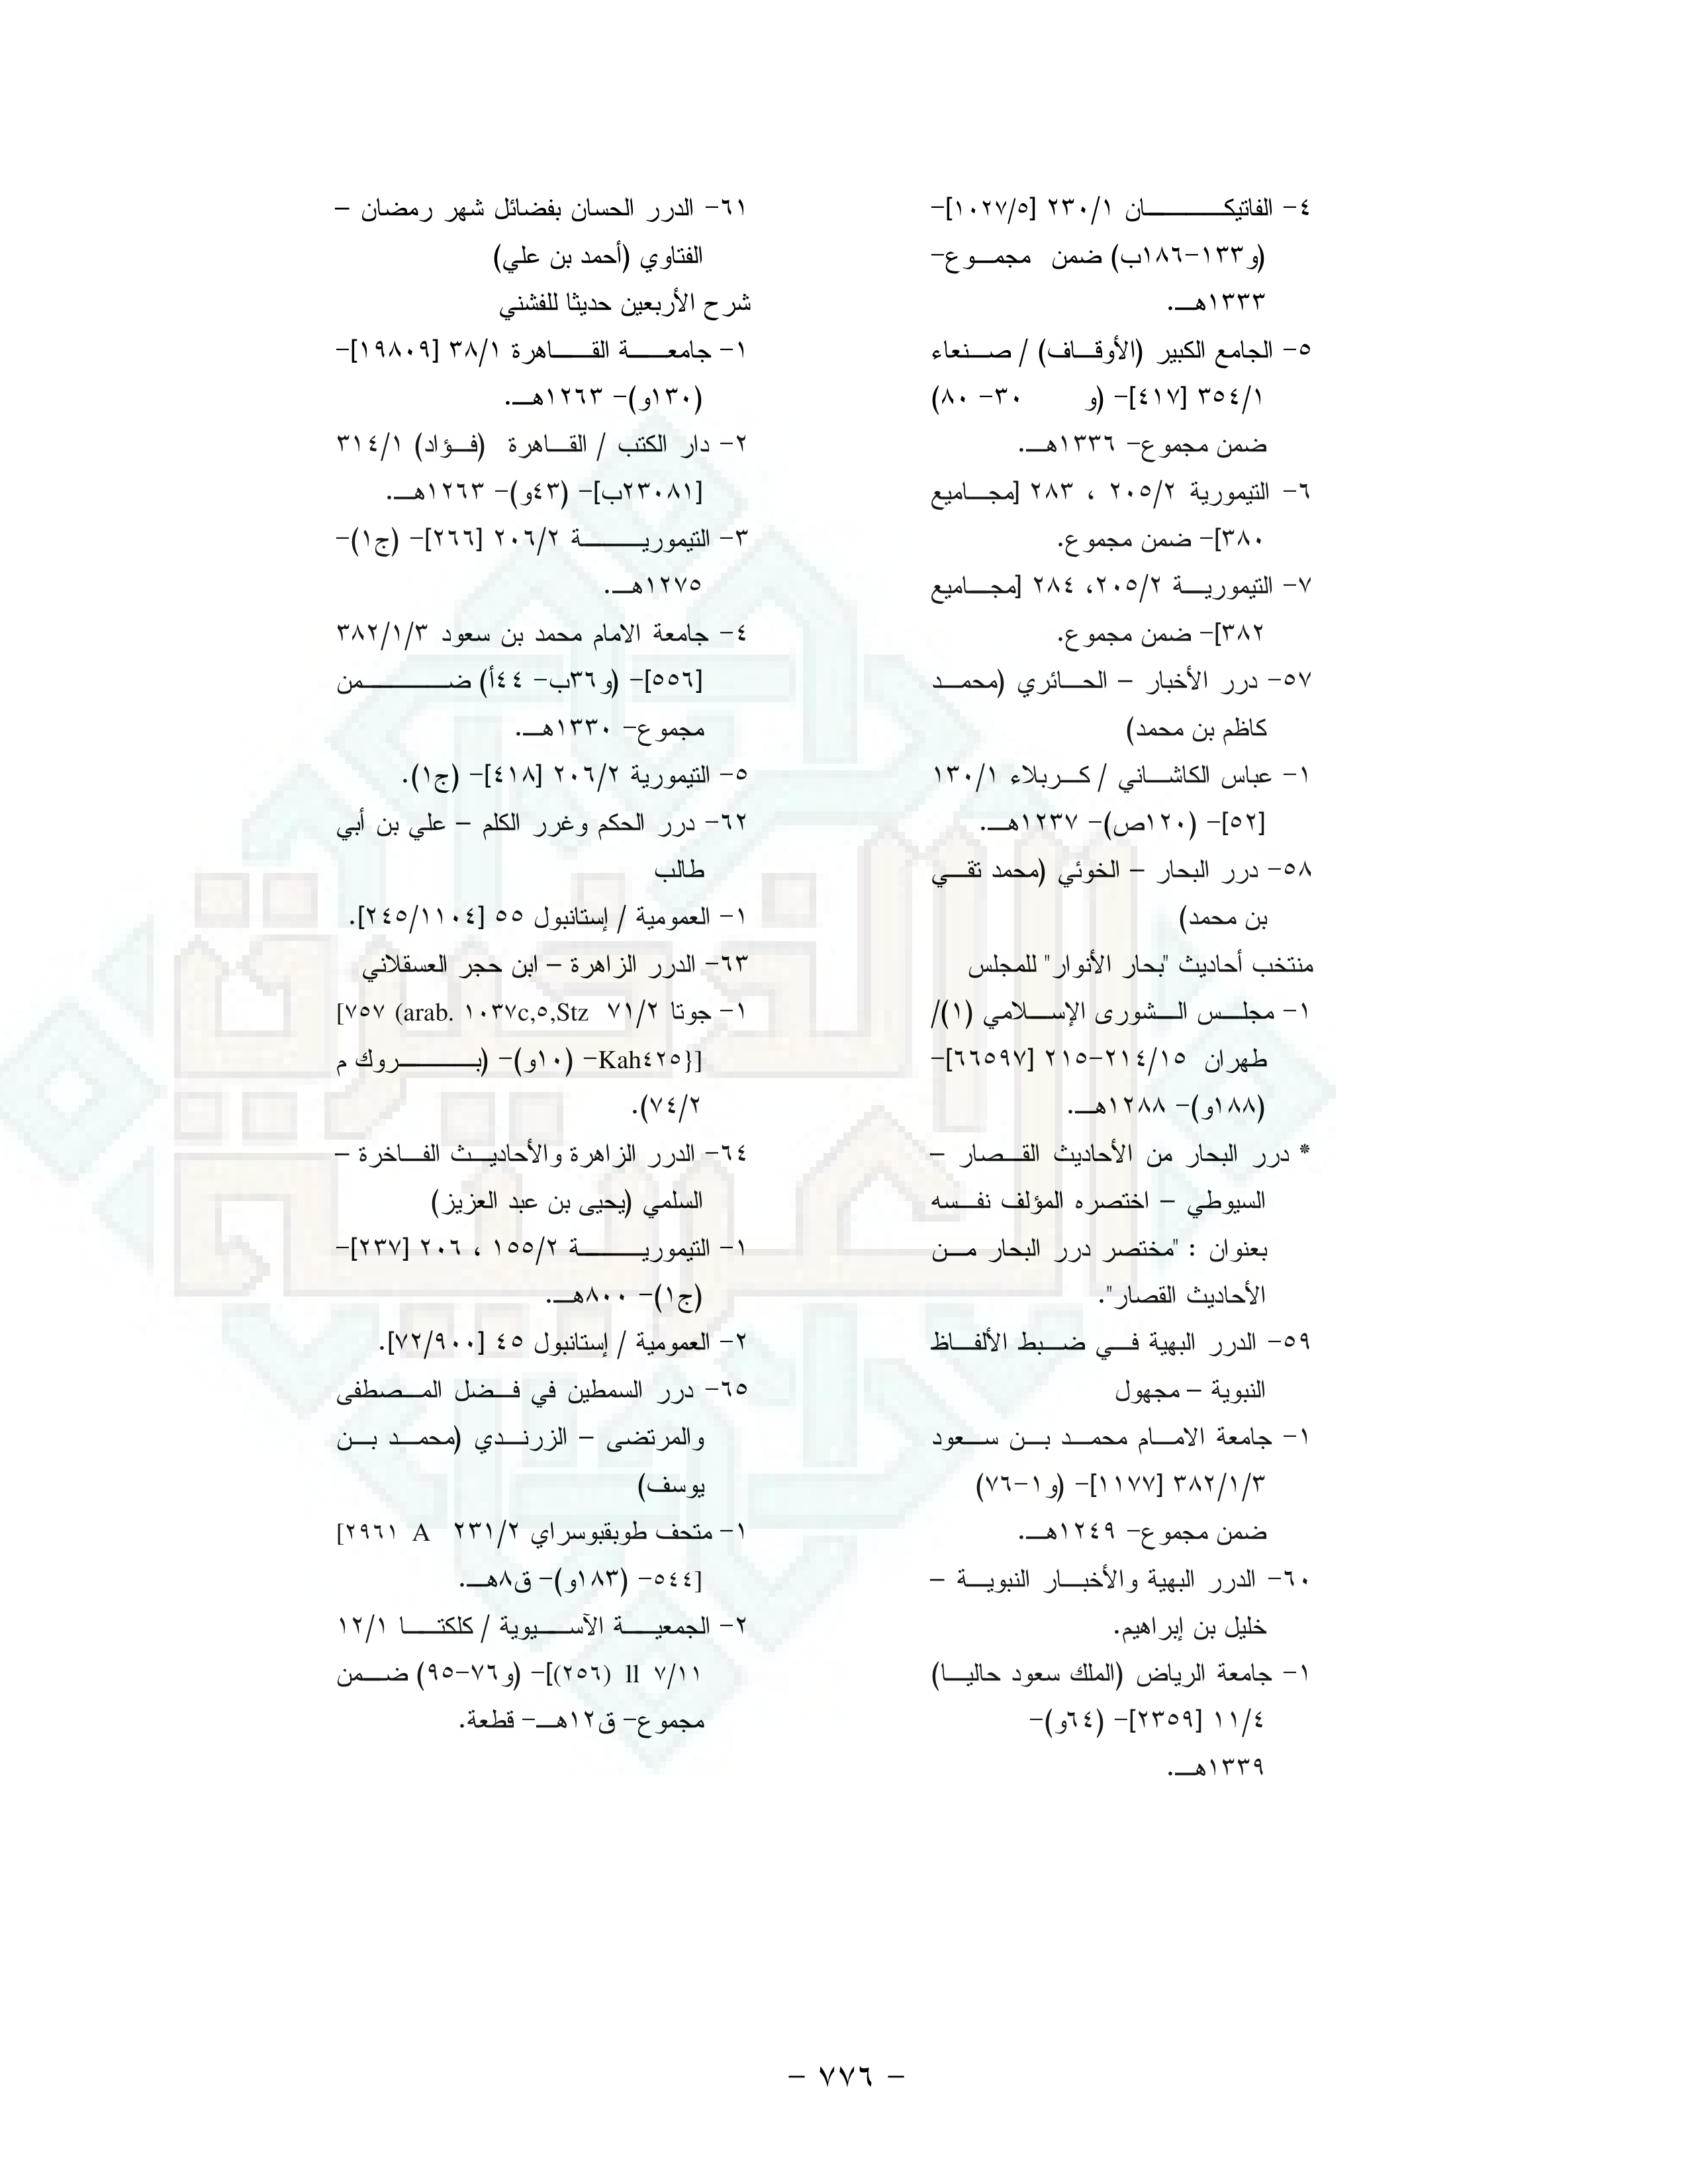 ٤- الفاتيكان ٢٣٠/١ [١٠٢٧/٥]-
(و١٣٣-١٨٦ب) ضمن مجموع-
١٣٣٣هـ.
٥- الجامع الكبير (الأوقاف) / صنعاء
٣٥٤/١ [٤١٧]- (و ٣٠- ٨٠)
ضمن مجموع- ١٣٣٦هـ.
٦- التيمورية ٢٠٥/٢ ، ٢٨٣ [مجاميع
٣٨٠]- ضمن مجموع.
٧- التيمورية ٢٠٥/٢، ٢٨٤ [مجاميع
٣٨٢]- ضمن مجموع.
٥٧- درر الأخبار – الحائري (محمد
كاظم بن محمد)
١- عباس الكاشاني / كربلاء ١٣٠/١
[٥٢]- (١٢٠ص)- ١٢٣٧هـ.
٥٨- درر البحار – الخوئي (محمد تقي
بن محمد)
منتخب أحاديث "بحار الأنوار" للمجلس
١- مجلس الشورى الإسلامي (١)/
طهران ٢١٤/١٥-٢١٥ [٦٦٥٩٧]-
(١٨٨و)- ١٢٨٨هـ.
* درر البحار من الأحاديث القصار –
السيوطي – اختصره المؤلف نفسه
بعنوان : "مختصر درر البحار من
الأحاديث القصار".
٥٩- الدرر البهية في ضبط الألفاظ
النبوية – مجهول
١- جامعة الامام محمد بن سعود
٣٨٢/١/٣ [١١٧٧]- (و١-٧٦)
ضمن مجموع- ١٢٤٩هـ.
٦٠- الدرر البهية والأخبار النبوية –
خليل بن إبراهيم.
١- جامعة الرياض (الملك سعود حاليا)
١١/٤ [٢٣٥٩]- (٦٤و)-
١٣٣٩هـ.
٦١- الدرر الحسان بفضائل شهر رمضان –
الفتاوي (أحمد بن علي)
شرح الأربعين حديثا للفشني
١- جامعة القاهرة ٣٨/١ [١٩٨٠٩]-
(١٣٠و)- ١٢٦٣هـ.
٢- دار الكتب / القاهرة (فؤاد) ٣١٤/١
[٢٣٠٨١ب]- (٤٣و)- ١٢٦٣هـ.
٣- التيمورية ٢٠٦/٢ [٢٦٦]- (ج١)-
١٢٧٥هـ.
٤- جامعة الامام محمد بن سعود ٣٨٢/١/٣
[٥٥٦]- (و٣٦ب- ٤٤أ) ضمن
مجموع- ١٣٣٠هـ.
٥- التيمورية ٢٠٦/٢ [٤١٨]- (ج١).
٦٢- درر الحكم وغرر الكلم – علي بن أبي
طالب
١- العمومية / إستانبول ٥٥ [٢٤٥/١١٠٤].
٦٣- الدرر الزاهرة – ابن حجر العسقلاني
١- جوتا ٧١/٢ ٧٥٧ (arab. ١٠٣٧c,٥,Stz]
[{Kah٤٢٥- (١٠و)- (بروك م
٧٤/٢).
٦٤- الدرر الزاهرة والأحاديث الفاخرة –
السلمي (يحيى بن عبد العزيز)
١- التيمورية ١٥٥/٢ ، ٢٠٦ [٢٣٧]-
(ج١)- ٨٠٠هـ.
٢- العمومية / إستانبول ٤٥ [٧٢/٩٠٠].
٦٥- درر السمطين في فضل المصطفى
والمرتضى – الزرندي (محمد بن
يوسف)
١- متحف طوبقبوسراي ٢٣١/٢ A ٢٩٦١]
[٥٤٤- (١٨٣و)- ق٨هـ.
٢- الجمعية الآسيوية / كلكتا ١٢/١
ll ٧/١١ (٢٥٦)]- (و٧٦-٩٥) ضمن
مجموع- ق١٢هـ- قطعة.
- ٧٧٦ -